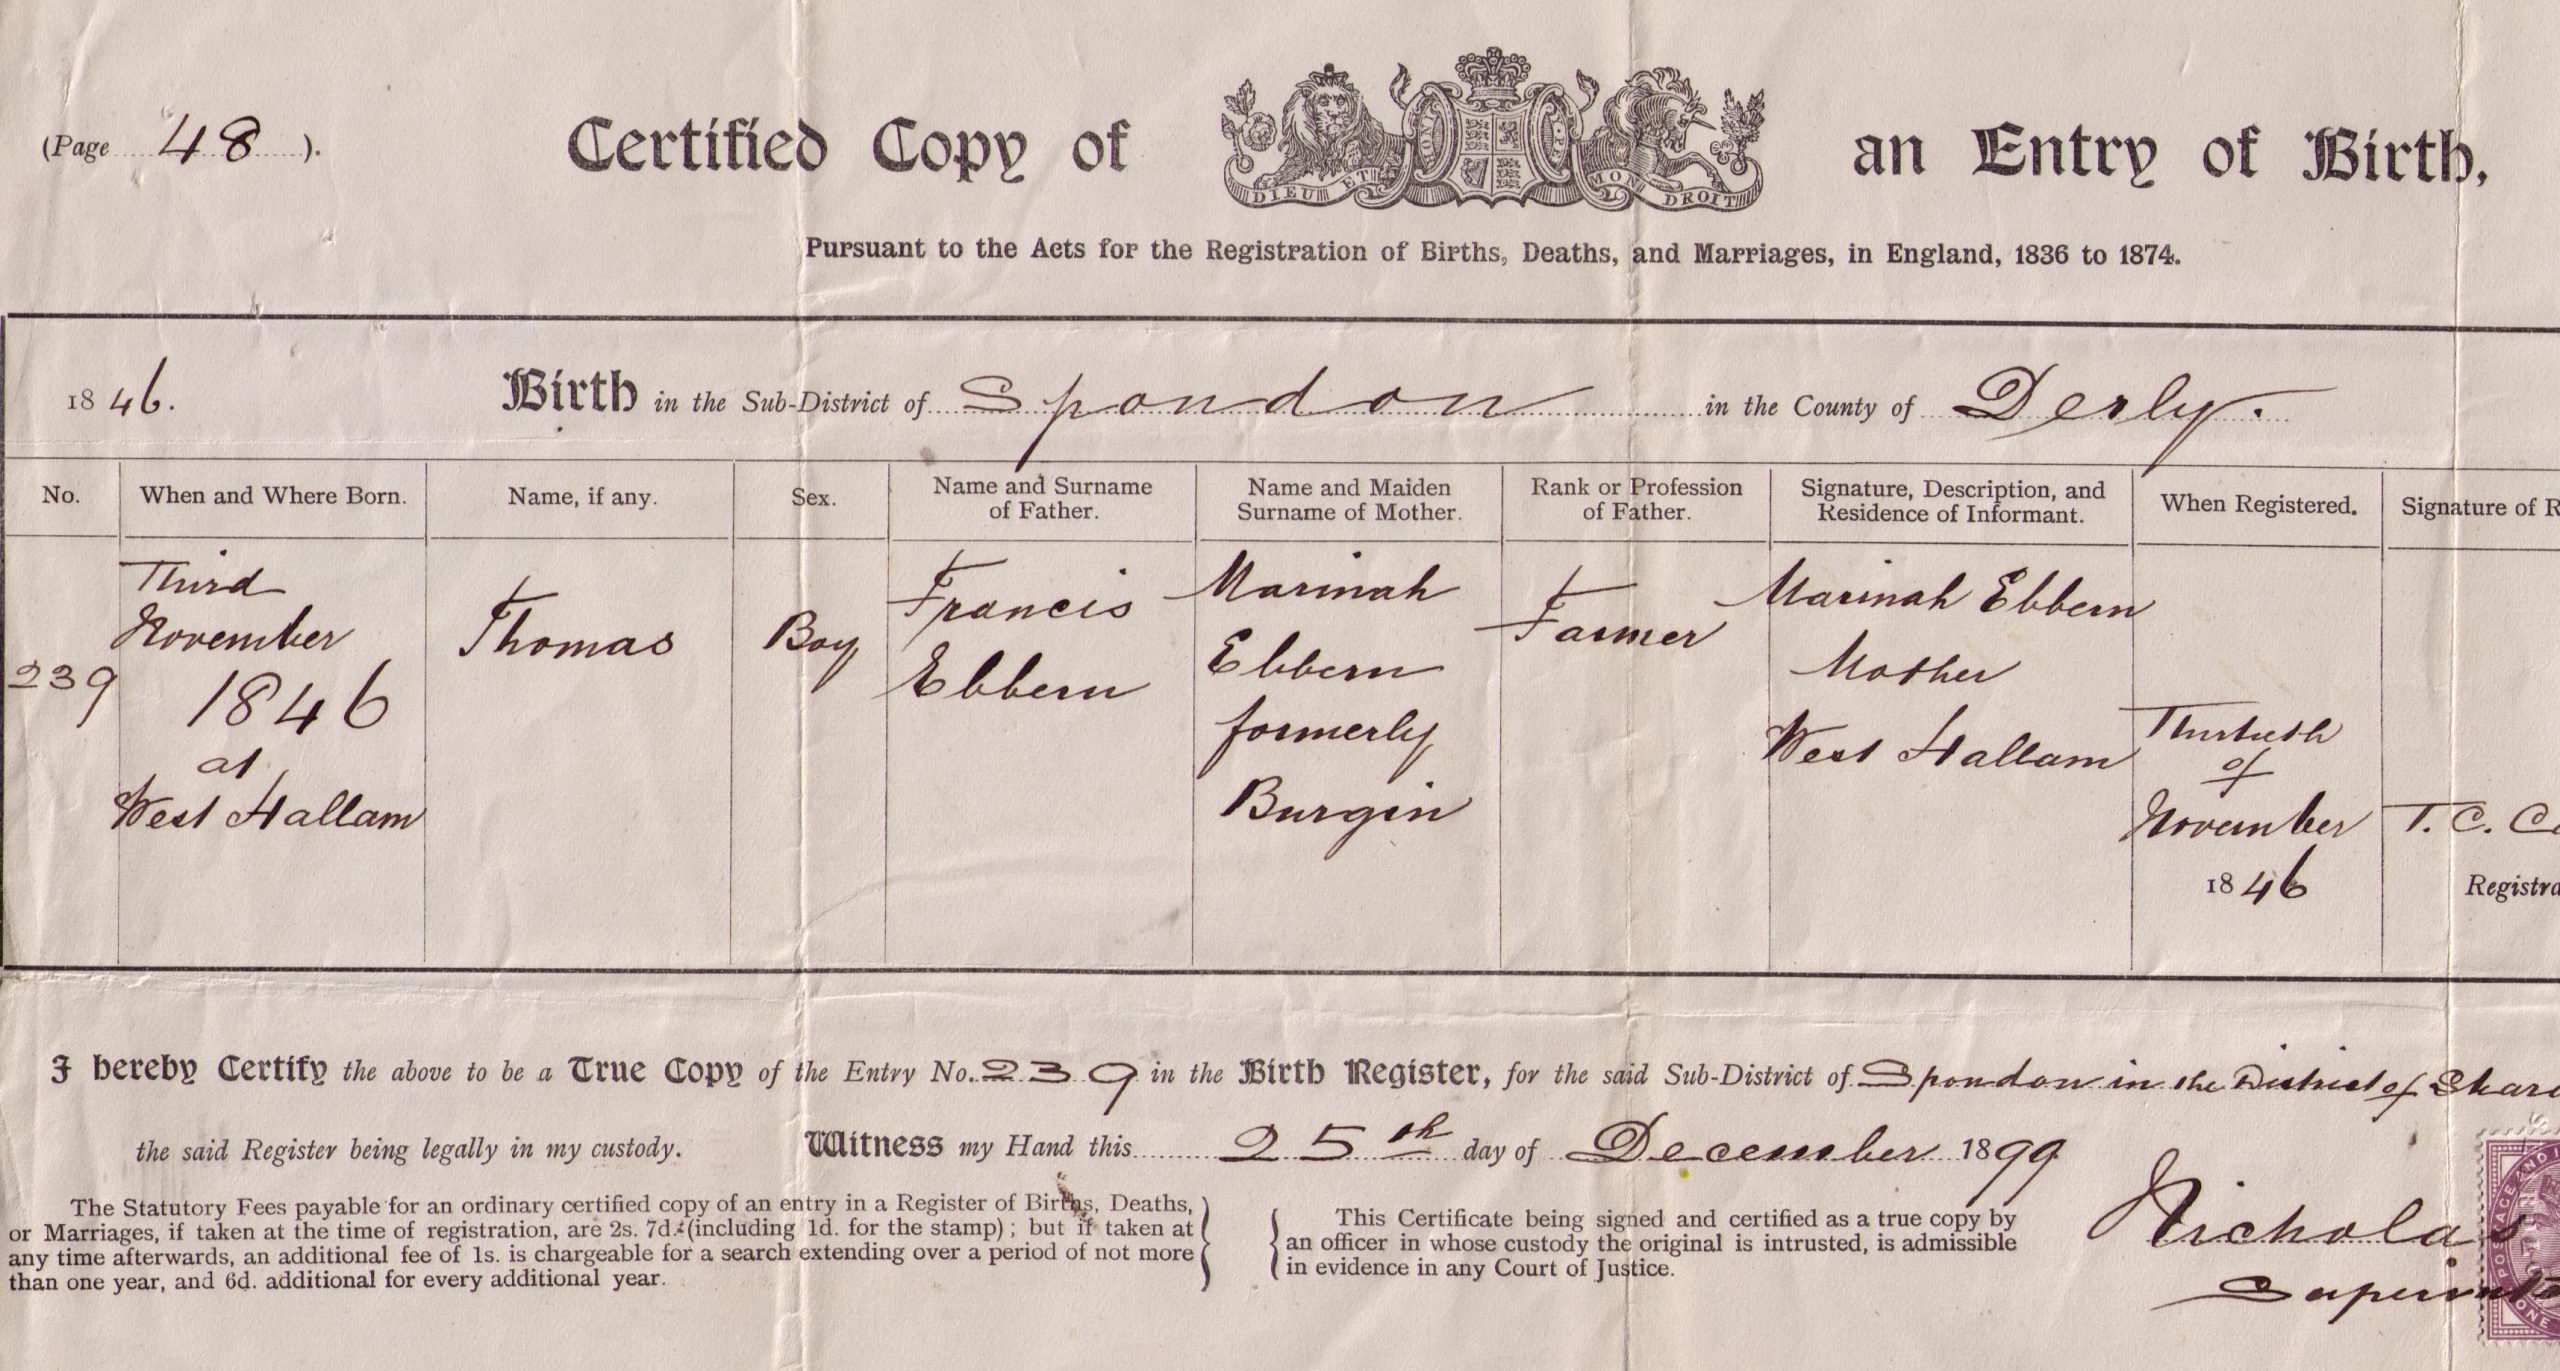 (Page 48 ).
Certified Copy of an Entry of Birth,
DIEU ET MON DROIT
Pursuant to the Acts for the Registration of Births, Deaths, and Marriages, in England, 1836 to 1874.
1846. Birth in the Sub-District of Spondon in the County of Derby.
No.
When and Where Born.
Name, if any.
Sex.
Name and Surname
of Father.
Name and Maiden
Surname of Mother.
Rank or Profession
of Father.
Signature, Description, and
Residence of Informant.
When Registered.
Signature of R
239
Third
November
1846
at
West Hallam
Thomas
Boy
Francis
Ebbern
Marinah
Ebbern
formerly
Burgin
Farmer
Marinah Ebbern
Mother
West Hallam
Thirtieth
of
November
1846
T. C. Co
Registra
I hereby Certify the above to be a True Copy of the Entry No. 239 in the Birth Register, for the said Sub-District of Spondon in the District of Shard
the said Register being legally in my custody. Witness my Hand this 25th day of December 1899
The Statutory Fees payable for an ordinary certified copy of an entry in a Register of Births, Deaths,
or Marriages, if taken at the time of registration, are 2s. 7d. (including 1d. for the stamp); but if taken at
any time afterwards, an additional fee of 1s. is chargeable for a search extending over a period of not more
than one year, and 6d. additional for every additional year.
This Certificate being signed and certified as a true copy by
an officer in whose custody the original is intrusted, is admissible
in evidence in any Court of Justice.
Nicholas
Superint